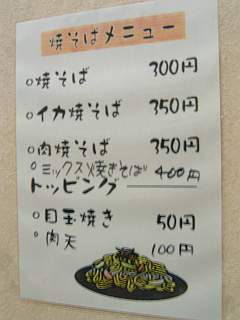 焼そばメニュー
○焼そば 300円
○イカ焼そば 350円
○肉焼そば 350円
○ミックス焼きそば 400円
トッピング
○目玉焼き 50円
○肉天 100円